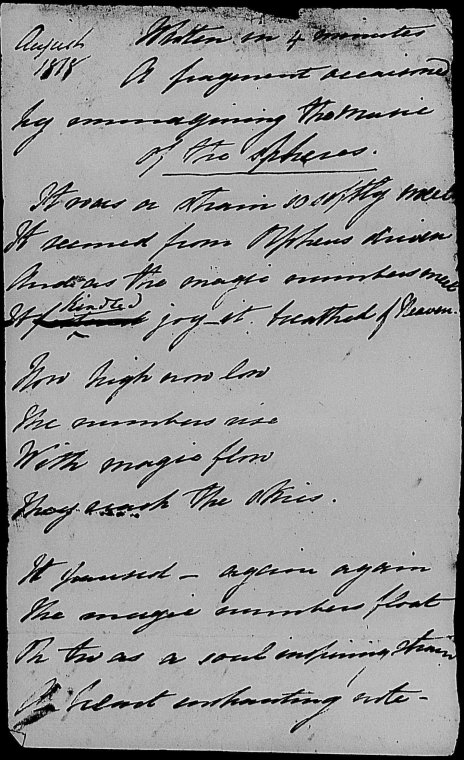 August Written in 4 minutes
1818 A fragment occasioned
by immagining the Music
of the spheres.
It was a strain so softly
It seemed from Orpheus driven
And as the magic numbers meet
It kindled joy – it breathed of Heaven.
Now high now low
The numbers rise
With magic flow
They reach the skies.
It paused – again again
The magic numbers float
Oh twas a soul inspiring strain
A heart enchanting note –